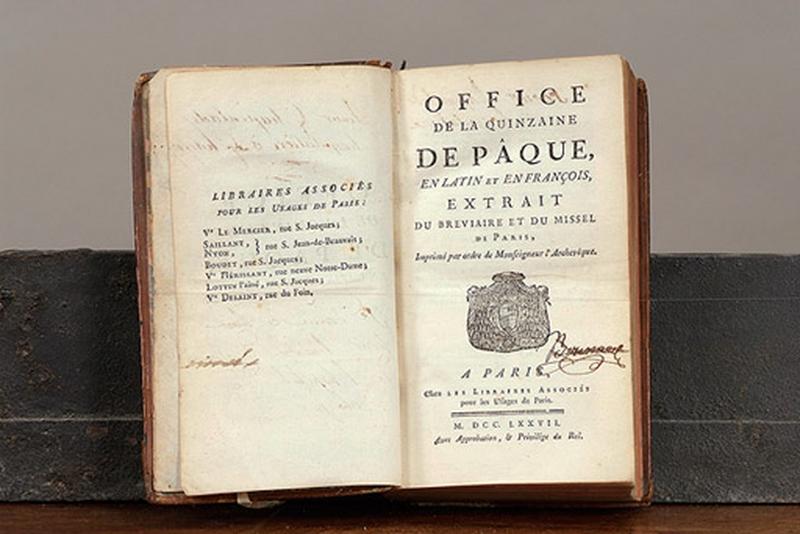 LIBRAIRES ASSOCIÉS
POUR LES USAGES DE PARIS:
Ve LE MERCIER, rue S. Jacques;
SAILLANT,
NYON, } rue S. Jean-de-Beauvais;
BOUDET, rue S. Jacques;
Ve HÉRISSANT, rue neuve Notre-Dame;
LOTTIN l'aîné, rue S. Jacques;
Ve DESAINT, rue du Foin.
OFFICE
DE LA QUINZAINE
DE PÂQUE,
EN LATIN ET EN FRANÇOIS,
EXTRAIT
DU BREVIAIRE ET DU MISSEL
DE PARIS,
Imprimé par ordre de Monseigneur l'Archevêque.
A PARIS,
Chez LES LIBRAIRES ASSOCIÉS
pour les Usages de Paris.
M. DCC. LXXVII.
Avec Approbation, & Privilége du Roi.